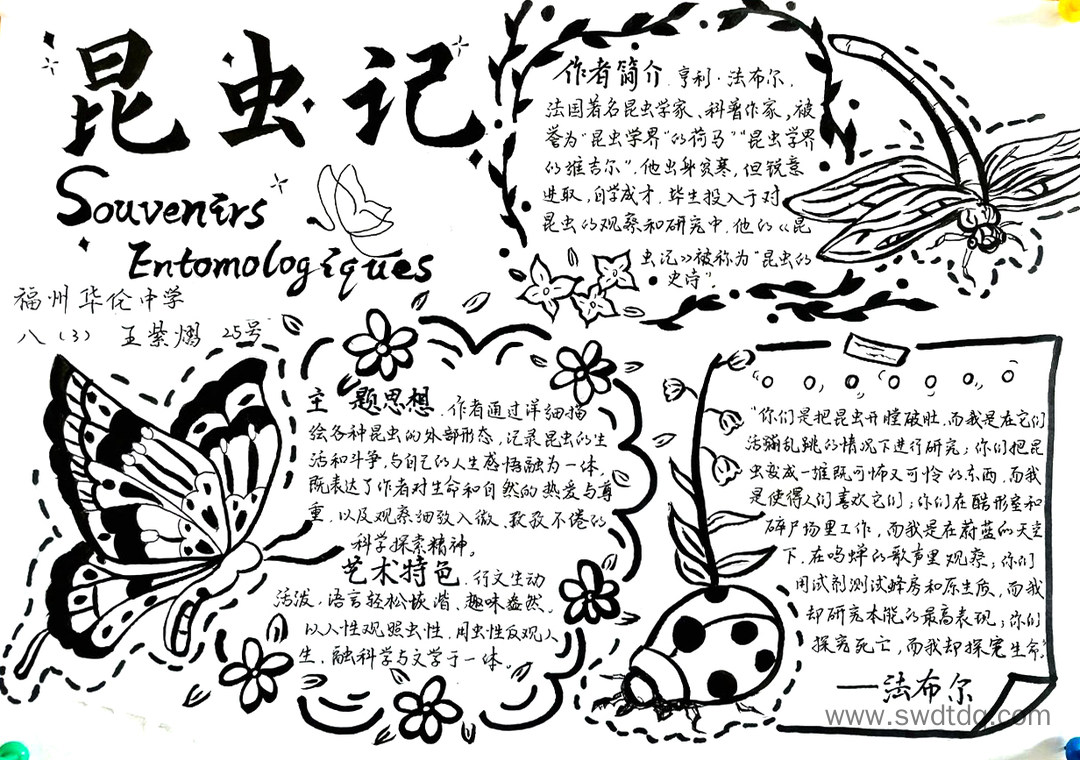 昆虫记
Souvenirs
Entomologiques
福州华伦中学
八(3) 王紫熠 25号
作者简介.亨利·法布尔,
法国著名昆虫学家、科普作家,被
誉为“昆虫学界”的荷马”“昆虫学界
的维吉尔”.他出身贫寒,但锐意
进取,自学成才,毕生投入于对
昆虫的观察和研究中,他的《昆
虫记》被称为“昆虫的
史诗”.
主题思想.作者通过详细描
绘各种昆虫的外部形态,记录昆虫的生
活和斗争,与自己的人生感悟融为一体.
既表达了作者对生命和自然的热爱与尊
重,以及观察细致入微、孜孜不倦的
科学探索精神。
艺术特色.行文生动
活泼,语言轻松诙谐、趣味盎然。
以人性观照虫性,用虫性反观人
生,融科学与文学于一体。
“你们是把昆虫开膛破肚,而我是在它们
活蹦乱跳的情况下进行研究;你们把昆
虫变成一堆既可怖又可怜的东西,而我
是使得人们喜欢它们;你们在酷刑室和
碎尸场里工作,而我是在蔚蓝的天空
下,在鸣蝉的歌声里观察;你们
用试剂测试蜂房和原生质,而我
却研究本能的最高表现;你们
探究死亡,而我却探究生命.”
——法布尔
www.swdtdq.com